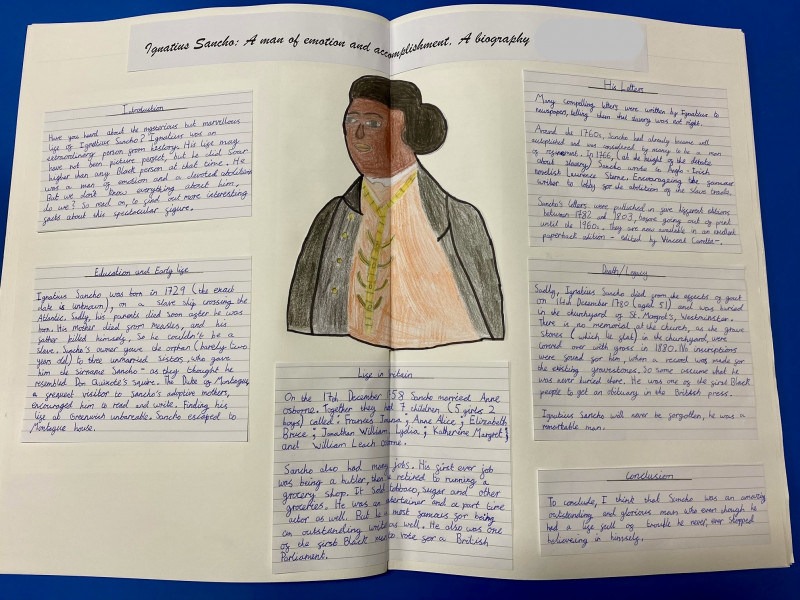 Ignatius Sancho: A man of emotion and accomplishment. A biography
Introduction
Have you heard about the mysterious but marvellous
life of Ignatius Sancho? Ignatius was an
extraordinary person from history. His life may
have not been picture perfect, but he did soar
higher than any Black person at that time. He
was a man of emotion and a devoted abolitionist
But we don't know everything about him,
do we? So read on, to find out more interesting
facts about this spectacular figure.
Education and Early life
Ignatius Sancho was born in 1729 (the exact
date is unknown) on a slave ship crossing the
Atlantic. Sadly, his parents died soon after he was
born. His mother died from measles, and his
father killed himself, so he couldn't be a
slave. Sancho's owner gave the orphan (barely two
years old) to three unmarried sisters, who gave
him the sirname Sancho - as they thought he
resembled Don Quixote's squire. The Duke of Montague,
a frequent visitor to Sancho's adoptive mothers,
encouraged him to read and write. Finding his
life at Greenwich unbareable, Sancho escaped to
Montague house.
Life in Britain
On the 17th December 58 Sancho married Anne
osborne. Together they had 7 children (5 girls 2
boys) called: Frances Joanna; Anne Alice; Elizabeth
Bruce; Jonathan William; Lydia; Katherine Margret;
and William Leach Osborne.
Sancho also had many jobs. His first ever job
was being a butler, then he retired to running a
grocery shop. It sold tobbaco, sugar and other
groceries. He was an entertainer and a part time
actor as well. But he is most famous for being
an outstanding writer as well. He also was one
of the first Black men to vote for a British
Parliament.
His Letters
Many compelling letters were written by Ignatius to
newspapers, telling them that slavery was not right.
Around the 1760s, Sancho had already become well
acclaimed and was considered by many to be a man
of refinement. In 1766, (at the height of the debate
about slavery) Sancho wrote to Anglo-Irish
novelist Lawrence Sterne. Encourageing the famous
writer to lobby for the abolition of the slave trade.
Sancho's letters were published in five different editions
between 1782 and 1803, before going out of print
until the 1960s. They are now available in an excellent
paperback edition - edited by Vincent Caretta-.
Death/Legacy
Sadly, Ignatius Sancho died from the effects of gout
on 14th December 1780 (aged 51) and was buried
in the churchyard of St. Margret's, Westminster.
There is no memorial at the church, as the grave
stones (which lie flat) in the churchyard, were
covered over with grass in 1880. No inscriptions
were found for him, when a record was made for
the existing gravestones. So some assume that he
was never buried there. He was one of the first Black
people to get an obituary in the British press.
Ignatius Sancho will never be forgotten, he was a
remarkable man.
Conclusion
To conclude, I think that Sancho was an amazing
outstanding and glorious man who even though he
had a life full of trouble he never, ever stopped
believeing in himself.